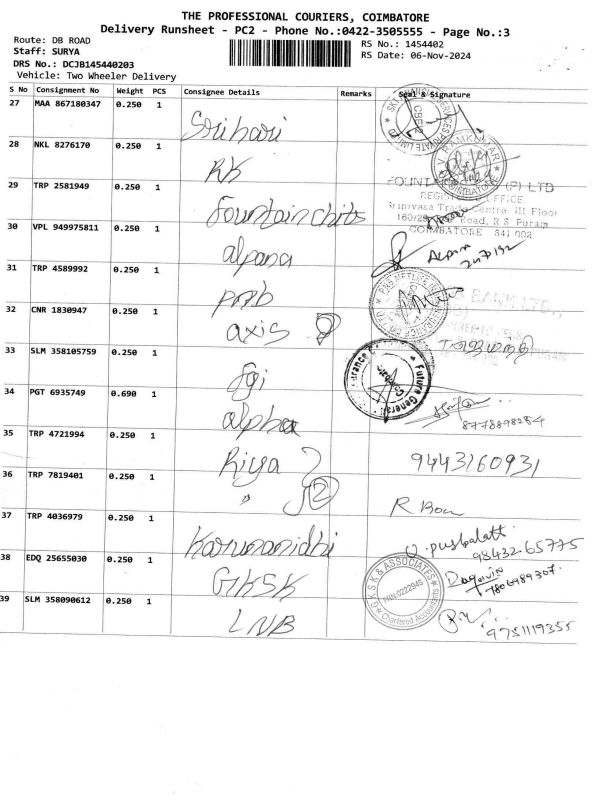 THE PROFESSIONAL COURIERS, COIMBATORE
Delivery Runsheet - PC2 - Phone No.:0422-3505555 - Page No.:3
Route: DB ROAD
Staff: SURYA
DRS No.: DCJB145440203
Vehicle: Two Wheeler Delivery
RS No.: 1454402
RS Date: 06-Nov-2024
S No Consignment No Weight PCS Consignee Details Remarks Seal & Signature
27 MAA 867180347 0.250 1 Srihari
28 NKL 8276170 0.250 1 RK
V. RAMKUMAR
COIMBATORE
29 TRP 2581949 0.250 1 fountain chits
(P) LTD
REGISTERED OFFICE.
Srinivasa Trade Centre, III Floor
Road, R S Puram
COIMBATORE 641 002
30 VPL 949975811 0.250 1 alpana
Alpana
31 TRP 4589992 0.250 1 pnb
32 CNR 1830947 0.250 1 axis
BANK LTD.,
33 SLM 358105759 0.250 1 fgi
Future General
34 PGT 6935749 0.690 1 alpha
8778898284
35 TRP 4721994 0.250 1 Riya
9443160931
36 TRP 7819401 0.250 1 " 2
37 TRP 4036979 0.250 1 Karunanidhi
98432 65775
38 EDQ 25655030 0.250 1 GKSK
G K S K & ASSOCIATES
FRN:022294S
Chartered Accountants
7806989307.
39 SLM 358090612 0.250 1 LNB
9751119355